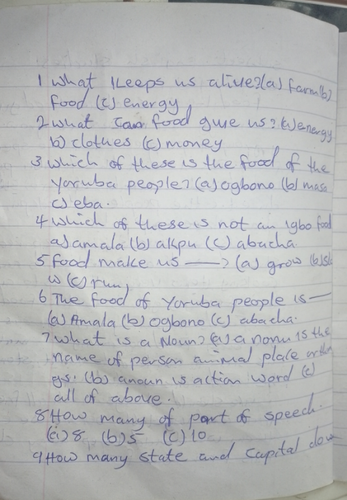 1 What keeps us alive? (a) farm (b)
food (c) energy
2 What can food give us? (a) energy
b) clothes (c) money
3 Which of these is the food of the
Yoruba people? (a) ogbono (b) masa
c) eba.
4 Which of these is not an Igbo food
a) amala (b) akpu (c) abacha
5 Food make us —? (a) grow (b)
(c) run)
6 The food of Yoruba people is —
(a) Amala (b) Ogbono (c) abacha.
7 What is a Noun? (a) a noun is the
name of person animal place or thin
gs. (b) anoun is action word (c)
all of above.
8 How many of part of speech.
(a) 8. (b) 5 (c) 10
9 How many state and Capital do